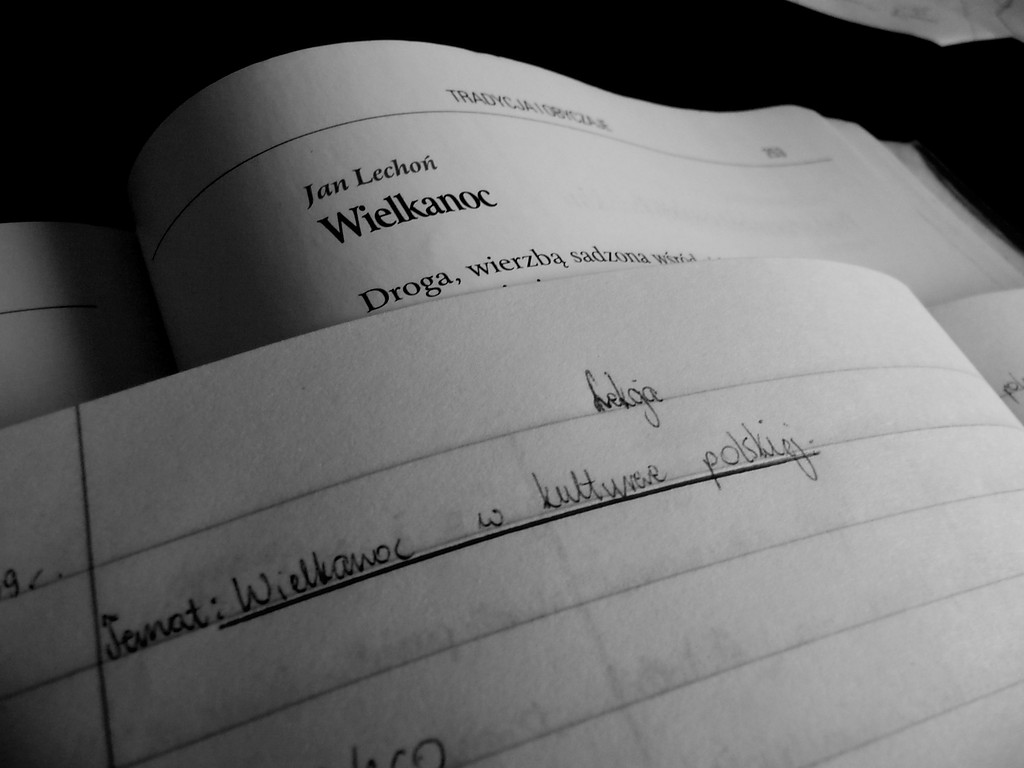 TRADYCJA I OBYCZAJE
253
Jan Lechoń
Wielkanoc
Droga, wierzbą sadzona wśród
Lekcja
9 r.
Temat: Wielkanoc w kulturze polskiej.